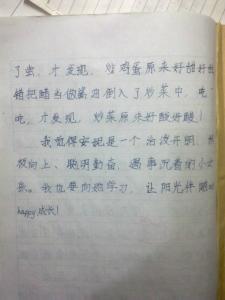 了尝，才发现，炒鸡蛋原来好甜好甜
错把醋当做酱油倒入了炒菜中，吃一
吃，才发现，炒菜原来好酸好酸！
我觉得安妮是一个活泼开朗，积
极向上、聪明勤奋，遇事沉着的小女
孩。我也要向她学习，让阳光伴随
happy成长！